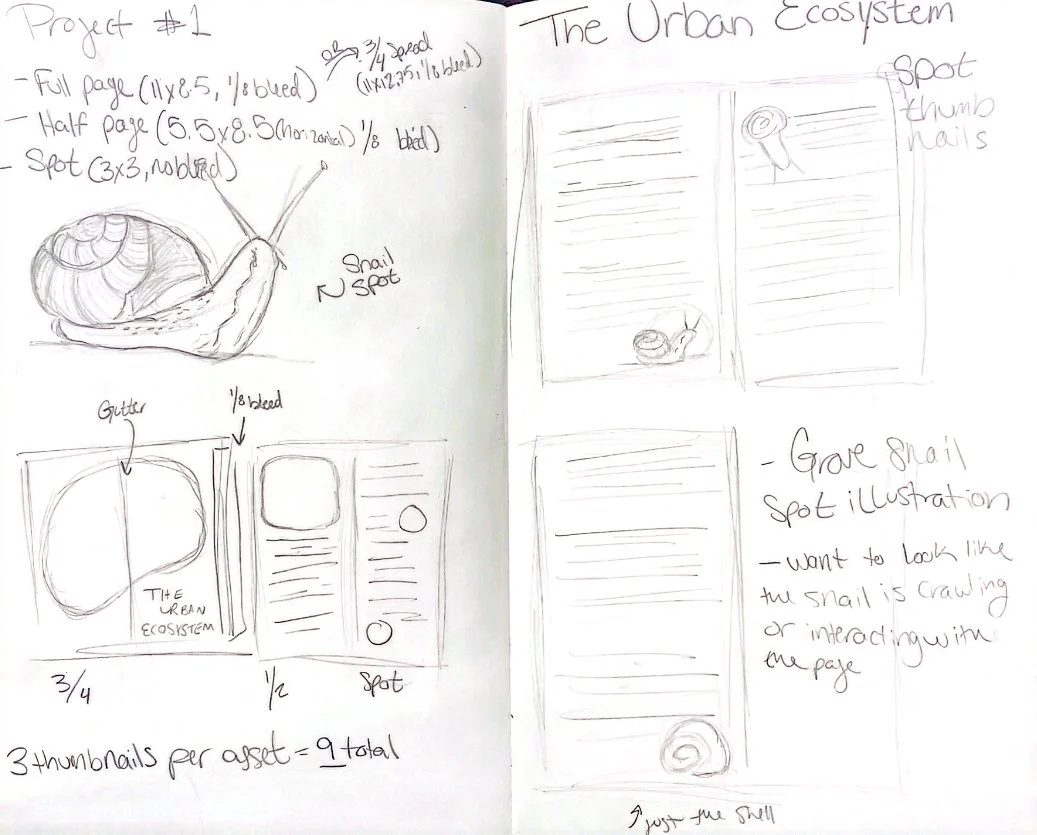 Project #1
- Full page (11x8.5, 1/8 bleed)
3/4 spread
(11x12.75, 1/8 bleed)
- Half page (5.5x8.5 (horizontal) 1/8 bleed)
- Spot (3x3, no bleed)
Snail
Spot
Gutter
1/8 bleed
THE
URBAN
ECOSYSTEM
3/4
1/2
Spot
3 thumbnails per asset = 9 total
The Urban Ecosystem
Spot
thumb
nails
- Grove Snail
Spot illustration
- want to look like
the snail is crawling
or interacting with
the page
just the shell